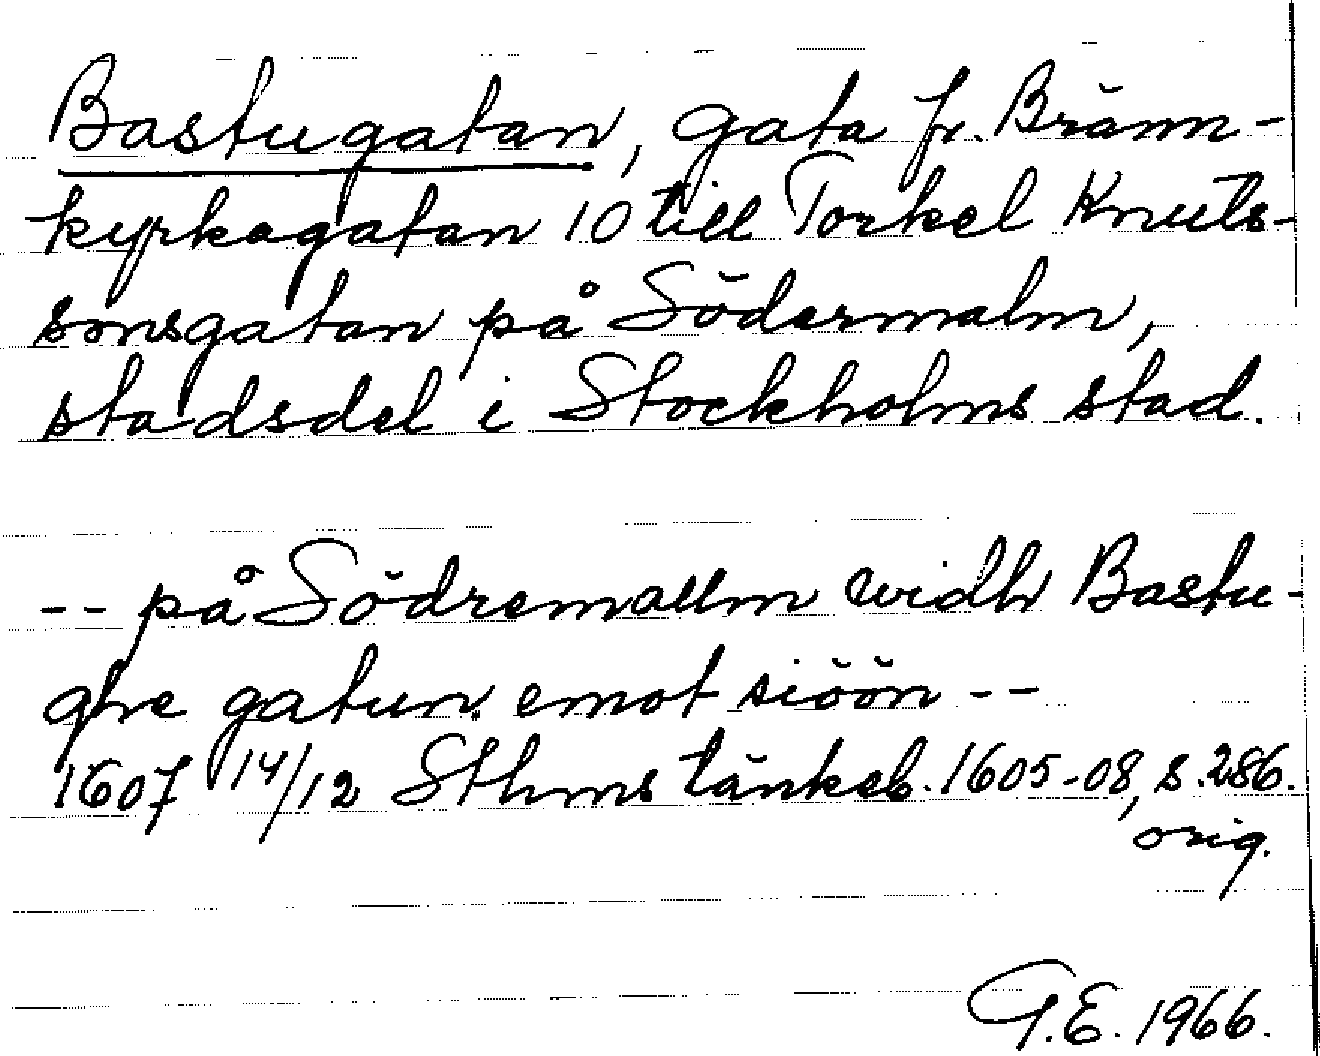 Bastugatan, gata fr. Bränn-
kyrkagatan 10 till Torkel Knuts-
sonsgatan på Södermalm,
stadsdel i Stockholms stad.
-- på Södremallm widh Bastu-
ghe gatun emot siöön --
1607 14/12 Sthms tänkeb. 1605-08, s. 286.
orig.
G.E. 1966.